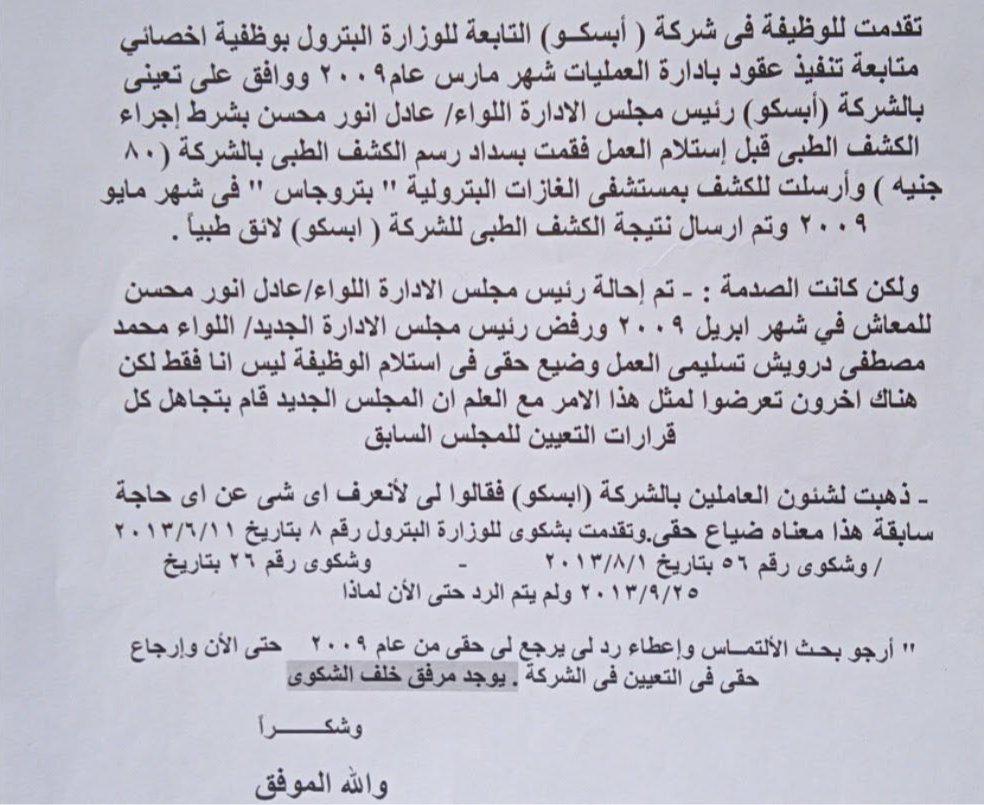 تقدمت للوظيفة فى شركة ( أبسكـو) التابعة للوزارة البترول بوظفية اخصائي
متابعة تنفيذ عقود بادارة العمليات شهر مارس عام٢٠٠٩ ووافق على تعينى
بالشركة (أبسكو) رئيس مجلس الادارة اللواء/ عادل انور محسن بشرط إجراء
الكشف الطبى قبل إستلام العمل فقمت بسداد رسم الكشف الطبى بالشركة (٨٠
جنيه ) وأرسلت للكشف بمستشفى الغازات البترولية " بتروجاس " فى شهر مايو
٢٠٠٩ وتم ارسال نتيجة الكشف الطبى للشركة ( ابسكو) لائق طبياً .
ولكن كانت الصدمة : - تم إحالة رئيس مجلس الادارة اللواء/عادل انور محسن
للمعاش في شهر ابريل ٢٠٠٩ ورفض رئيس مجلس الادارة الجديد/ اللواء محمد
مصطفى درويش تسليمى العمل وضيع حقى فى استلام الوظيفة ليس انا فقط لكن
هناك اخرون تعرضوا لمثل هذا الامر مع العلم ان المجلس الجديد قام بتجاهل كل
قرارات التعيين للمجلس السابق
- ذهبت لشئون العاملين بالشركة (ابسكو) فقالوا لى لأنعرف اى شى عن اى حاجة
سابقة هذا معناه ضياع حقى.وتقدمت بشكوى للوزارة البترول رقم ٨ بتاريخ ٢٠١٣/٦/١١
/ وشكوى رقم ٥٦ بتاريخ ٢٠١٣/٨/١ - وشكوى رقم ٢٦ بتاريخ
٢٠١٣/٩/٢٥ ولم يتم الرد حتى الأن لماذا
" أرجو بحث الألتمـاس وإعطاء رد لى يرجع لى حقى من عام ٢٠٠٩ حتى الأن وإرجاع
حقى فى التعيين فى الشركة . يوجد مرفق خلف الشكوى
وشكـــــراً
والله الموفق